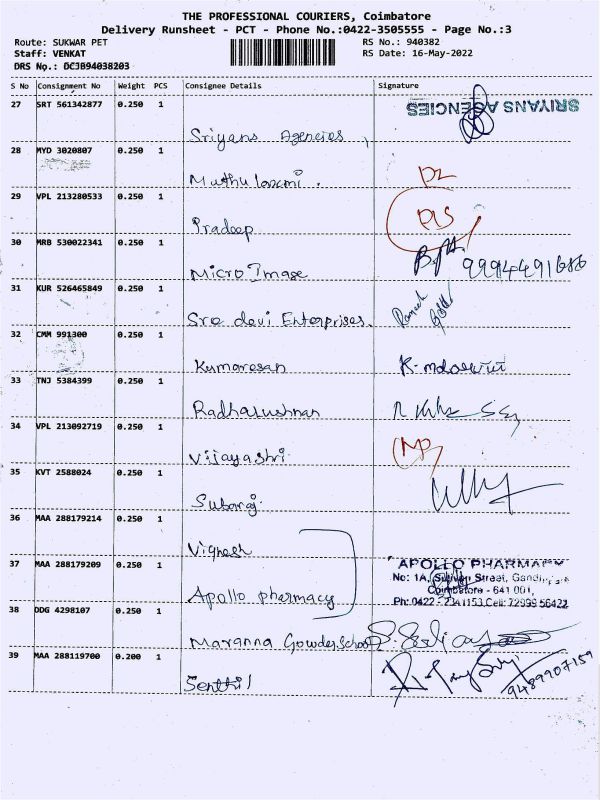 THE PROFESSIONAL COURIERS, Coimbatore
Delivery Runsheet - PCT - Phone No.:0422-3505555 - Page No.:3
Route: SUKWAR PET RS No.: 940382
Staff: VENKAT RS Date: 16-May-2022
DRS No.: DCJB94038203
S No Consignment No Weight PCS Consignee Details Signature
27 SRT 561342877 0.250 1 SRIYANS AGENCIES
Sriyans Agencies,
28 MYD 3020807 0.250 1
Muthu laxmi.
29 VPL 213280533 0.250 1
Pradeep
30 MRB 530022341 0.250 1
Micro Image 9994491686
31 KUR 526465849 0.250 1
Sree devi Enterprises.
32 CMM 991300 0.250 1
Kumaresan
33 TNJ 5384399 0.250 1
Radhakushnan
34 VPL 213092719 0.250 1
Vijayashri
35 KVT 2588024 0.250 1
Suboraj
36 MAA 288179214 0.250 1
Vignesh
37 MAA 288179209 0.250 1 APOLLO PHARMACY
No: 1A, Street,
Apollo pharmacy Coimbatore - 641 001,
Ph: 0422 - 2341153 Cell: 72999 56422
38 DDG 4298107 0.250 1
Maranna Gowder School
39 MAA 288119700 0.200 1
Senthil 9489907159